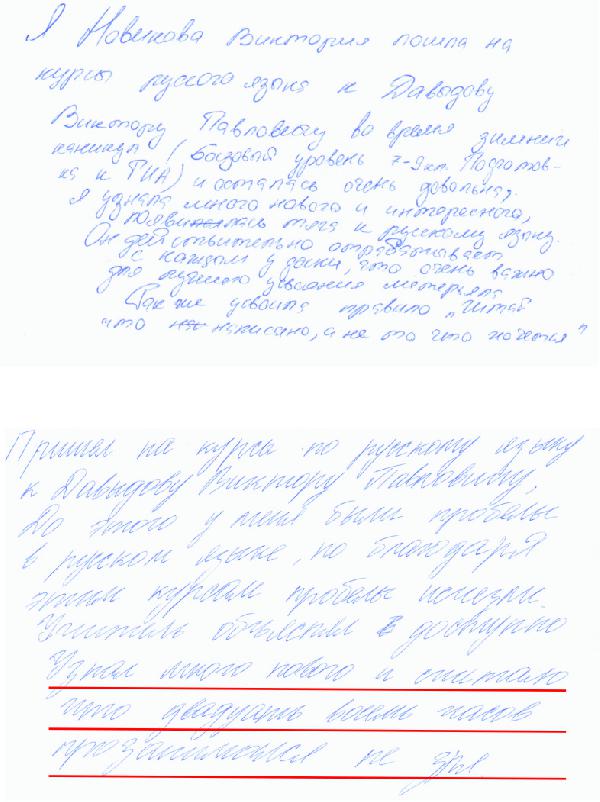 Я Новикова Виктория пошла на
курсы руского языка к Давыдову
Виктору Павловичу во время зимних
каникул (Базовый уровень 7-9 кл. Подготов-
ка к ГИА) и осталась очень довольна.
Я узнала много нового и интересного,
появилась тяга к русскому языку.
Он действительно отрабатывает
с каждым у доски, что очень важно
для лучшего усвоения материала
Так же усвоила правило „Читай
что написано, а не то что хочется"
Пришел на курсы по русскому языку
к Давыдову Виктору Павловичу,
До этого у меня были пробелы
в русском языке, но благодаря
этим курсам пробелы исчезли.
Учитель объяснял доступно
Узнал много нового и считаю
что двадцать восемь часов
прозанимался не зря.